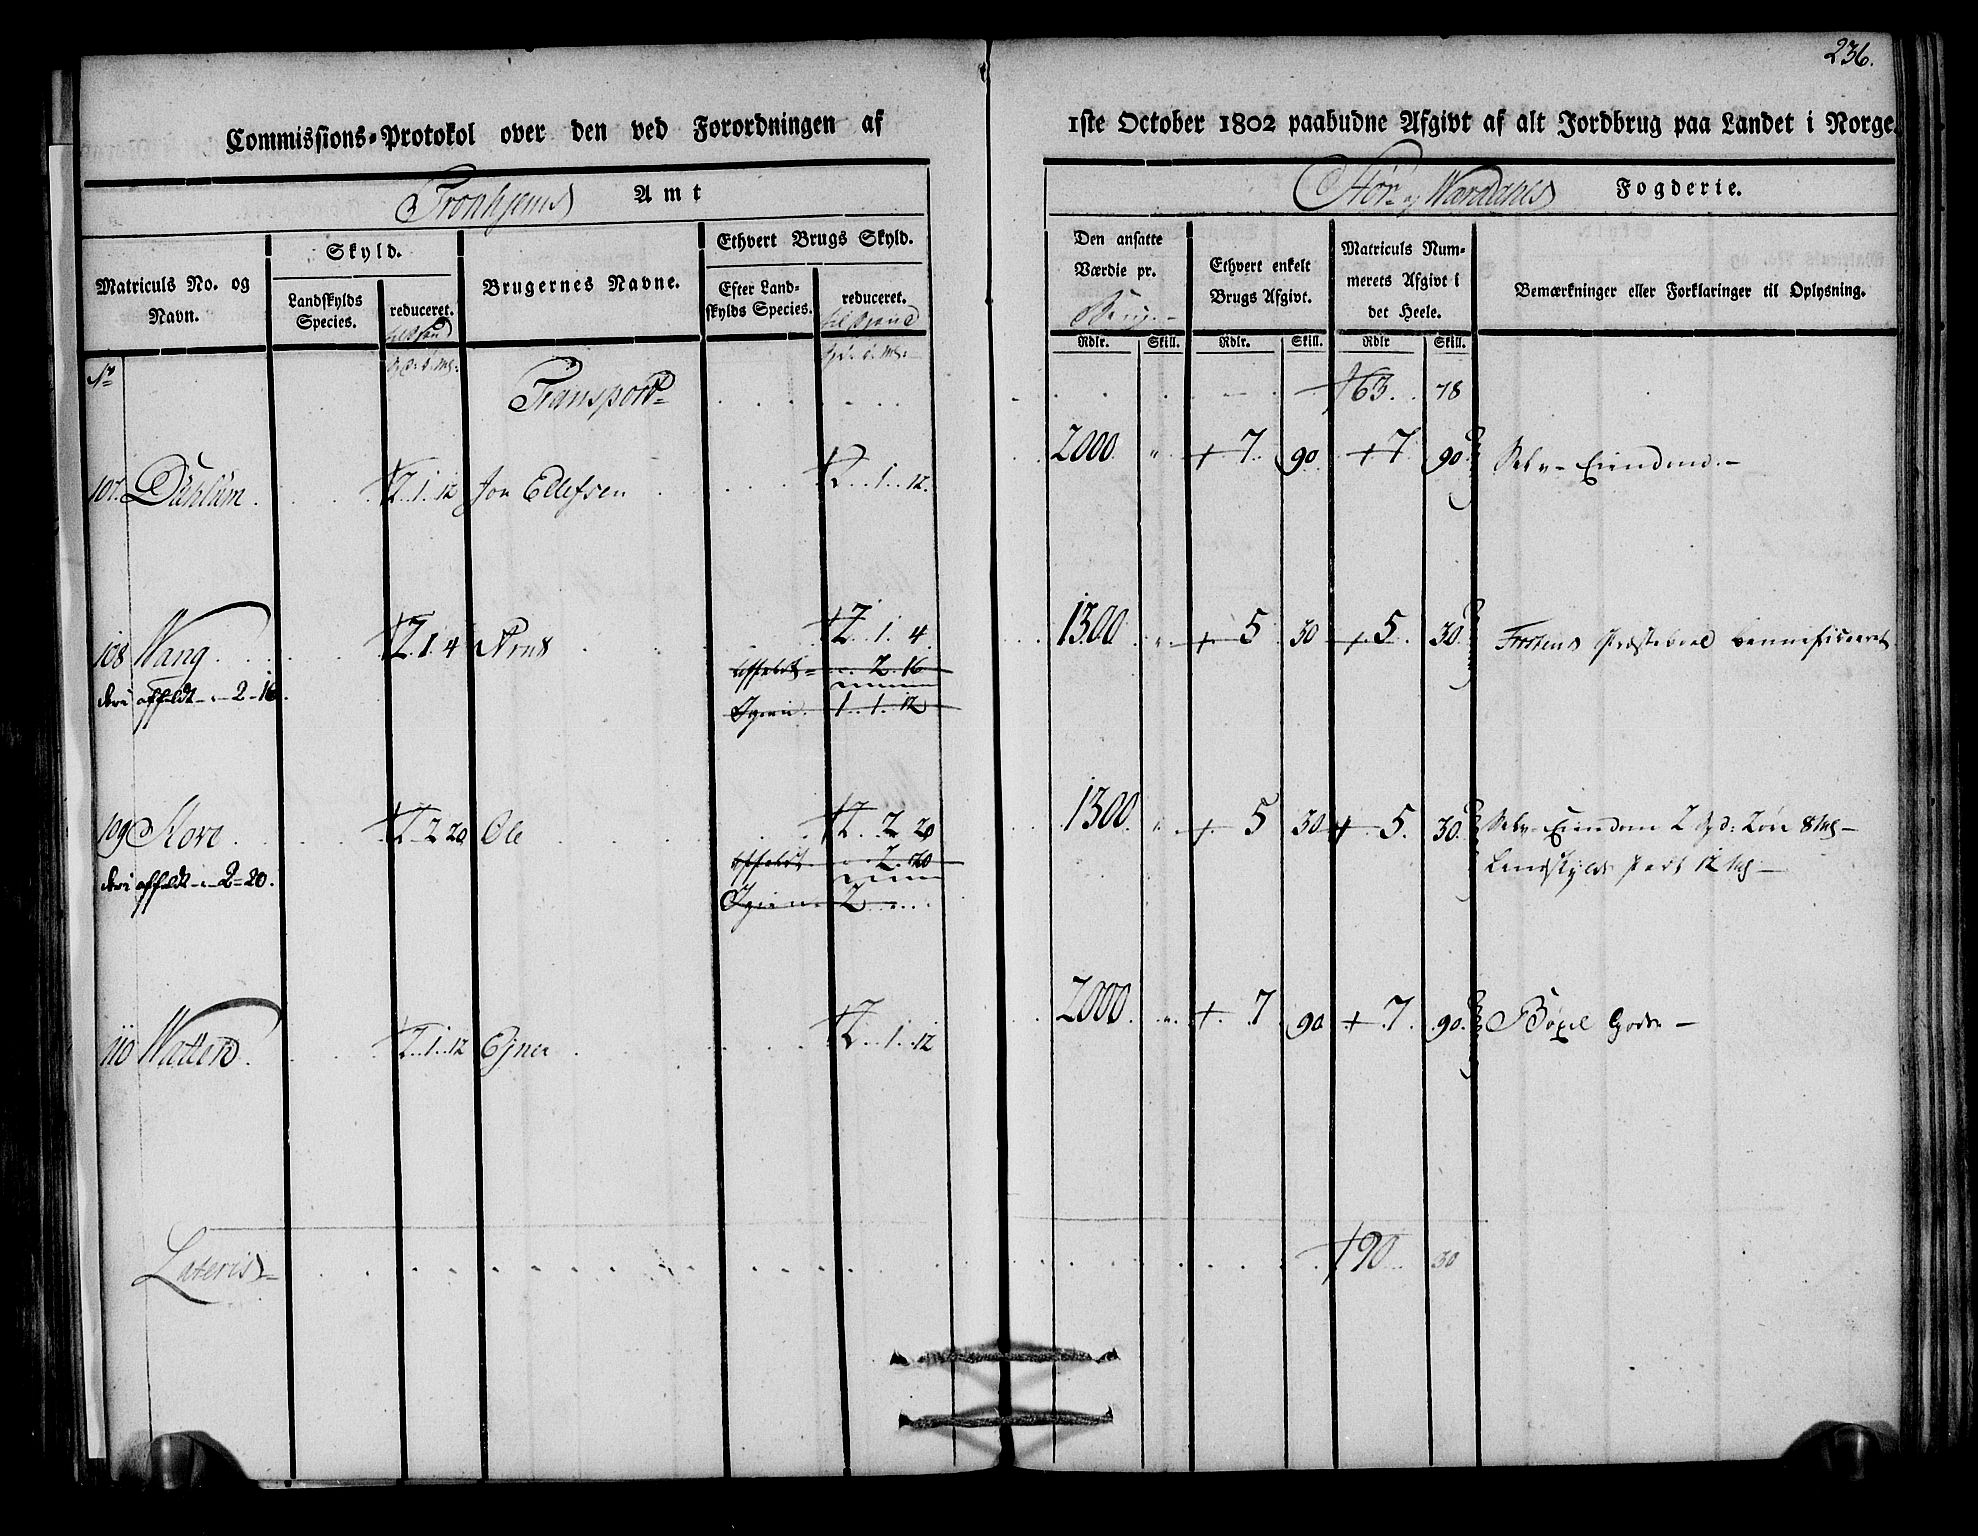 236.
Commissions-Protokol over den ved Forordningen af 1ste October 1802 paabudne Afgivt af alt Jordbrug paa Landet i Norge.
Tronhjems Amt
Stør- og Værdalens Fogderie.
Matriculs No. og Navn.
Skyld.
Landskylds Species.
reduceret.
Brugernes Navne.
Ethvert Brugs Skyld.
Efter Landskylds Species.
reduceret.
Den ansatte Værdie pr.
Ethvert enkelt Brugs Afgivt.
Matriculs Nummerets Afgivt i det Heele.
Bemærkninger eller Forklaringer til Oplysning.
Rdlr. Skill. Rdlr. Skill. Rdlr Skill.
No
Transport 63. 78
107. Dahlum 2. 1. 12 Jon Ellefsen 2. 1. 12. 2000 " 7 90 7 90 Selv-Eiendom.-
108 Wang 2. 1. 4 2. 1. 4 1300 " 5 30 5. 30.
deri affældt - " - 2 - 16. affældt 2. 16
Igien 1. 1. 12
109 2. 2 20 Ole 2. 2 20 1300 " 5 30 5. 30. Selv-Eiendom 2 Spd: 2 Øre 8 Mrk -
deri affældt - " - 2 - 20. affældt " 2. 20 Landskylds part 12 Mrk -
Igien 2 "
110 2. 1. 12 Ejner 2. 1. 12 2000. " 7 90 7. 90. Gods -
Lateris 90 30